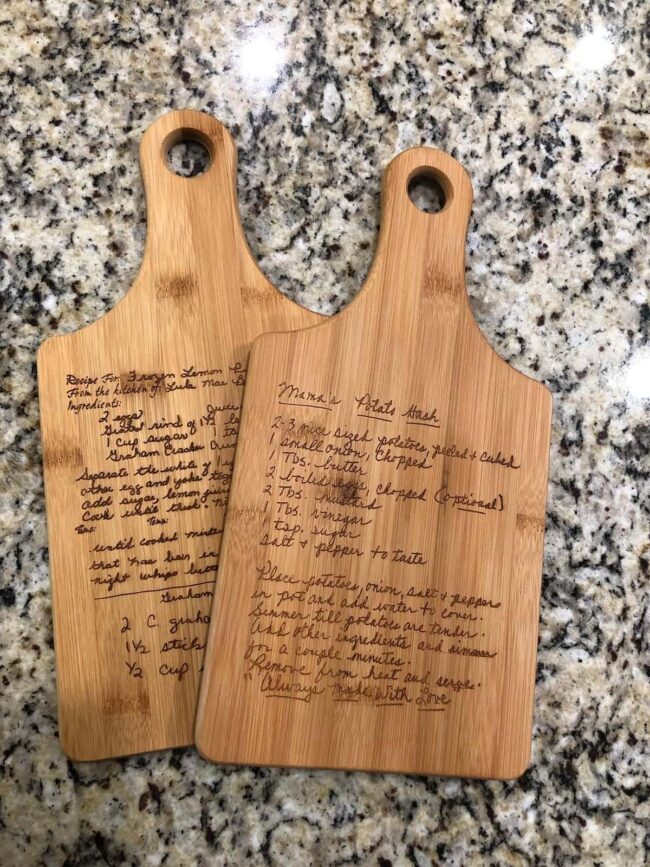 Recipe For: Frozen Lemon
From the kitchen of: Lula Mae
Ingredients:
2 eggs
Grated rind of 1½
1 cup sugar
Graham Cracker
Separate the white of 1
other egg and yoke
add sugar, lemon
Cook until thick.
until cooked
that has been in
night whips
Graham
2 C. graham
1½ stick
½ cup
Mama's Potato Hash
2-3 nice sized potatoes, peeled & cubed
1 small onion, chopped
1 Tbs. butter
2 boiled eggs, chopped (optional)
2 Tbs. mustard
1 Tbs. vinegar
1 tsp. sugar
salt & pepper to taste
Place potatoes, onion, salt & peppers
in pot and add water to cover.
Simmer till potatoes are tender.
Add other ingredients and simmer
for a couple minutes.
Remove from heat and serve.
"Always Made With Love